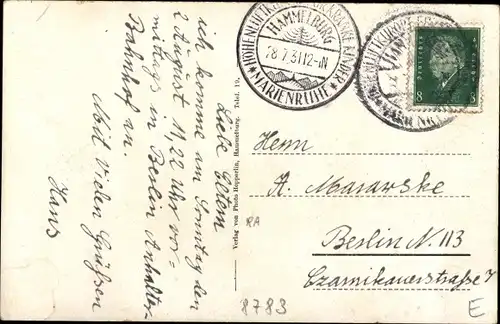 Liebe Eltern
ich komme am Sonntag den
2 August 11,22 Uhr vor-
mittags in Berlin Anhalter-
Bahnhof an.
Mit Vielen Grüßen
Hans
Verlag von Photo Hupperlin, Hammelburg. Telef. 19.
HAMMELBURG
28.7.31.12-1N
MARIENRUHE
8
8
Herrn
A. Masarske
Berlin N. 113
Czarnikauerstraße 7
RA
8783
E